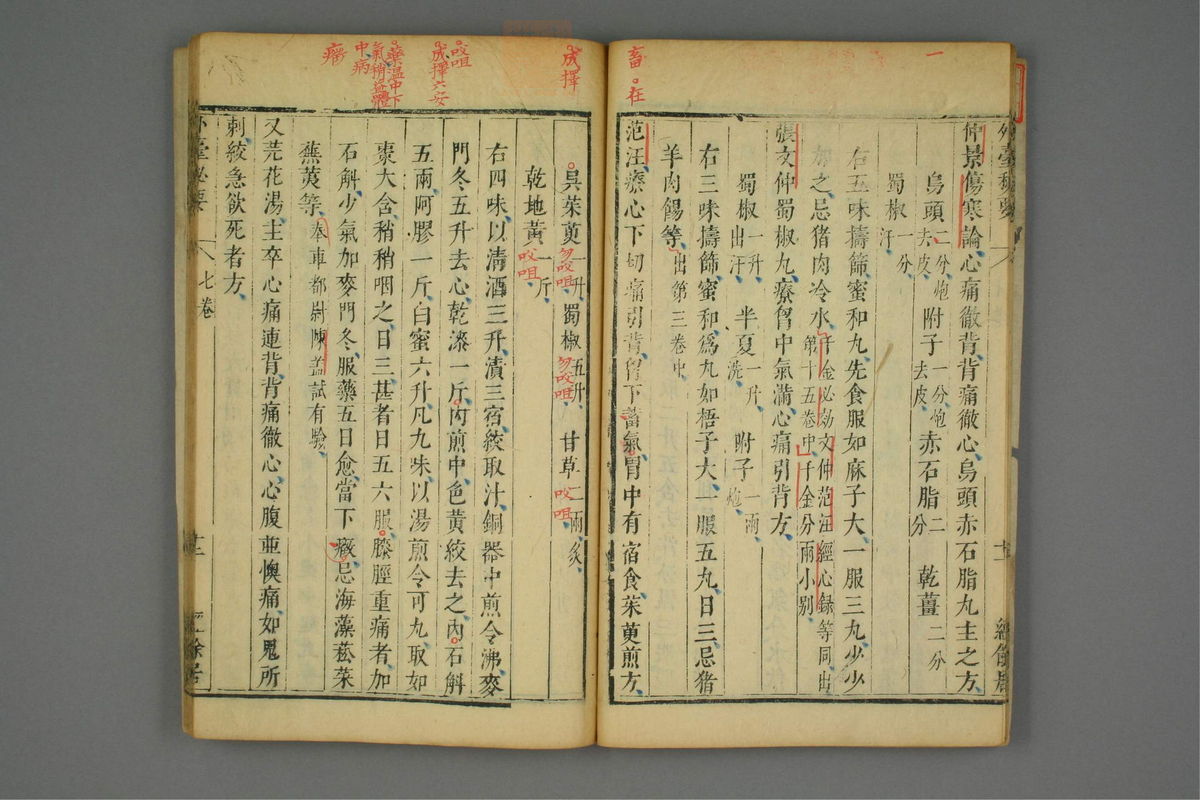 仲景傷寒論心痛徹背背痛徹心烏頭赤石脂丸主之方
烏頭二分炮去皮 附子一分炮去皮 赤石脂二分 乾薑二分
蜀椒一分汗
右五味擣篩蜜和丸先食服如麻子大一服三丸少少
加之忌猪肉冷水千金必効文仲范汪經心録等同出第十五卷中千金分兩小别
張文仲蜀椒丸療胷中氣滿心痛引背方
蜀椒一升出汗 半夏一升洗 附子一兩炮
右三味擣篩蜜和爲丸如梧子大一服五丸日三忌猪
羊肉餳等出第三卷中
范汪療心下切痛引背胷下蓄氣胃中有宿食茱萸煎方
畜 在
一
成擇
吳茱萸一升 蜀椒五升 甘草二兩炙
勿㕮咀
勿㕮咀
㕮咀
乾地黃一斤
㕮咀
右四味以清酒三升漬三宿絞取汁銅器中煎令沸麥
門冬五升去心乾漆一斤内煎中色黄絞去之内石斛
五兩阿膠一斤白蜜六升凡九味以湯煎令可丸取如
棗大含稍稍咽之日三甚者日五六服膝脛重痛者加
石斛少氣加麥門冬服藥五日愈當下癥忌海藻菘菜
蕪荑等奉車都尉陳盖試有驗
又芫花湯主卒心痛連背背痛徹心心腹並懊痛如鬼所
刺絞急欲死者方
㕮咀
成擇六安
藥温中下
中病
外臺秘要
七卷
十二
經餘居
外臺秘要
經餘居